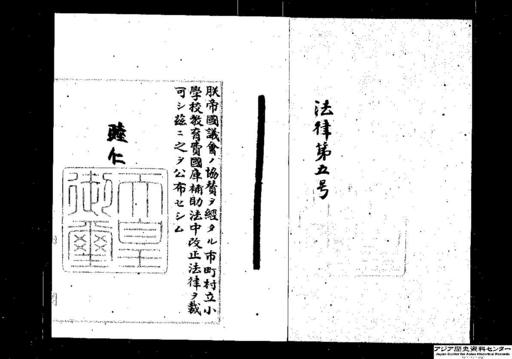 法律第五号
朕帝國議會ノ協賛ヲ經タル市町村立小
學校教育費國庫補助法中改正法律ヲ裁
可シ茲ニ之ヲ公布セシム
睦仁
天皇
御璽
アジア歴史資料センター
Japan Center for Asian Historical Records